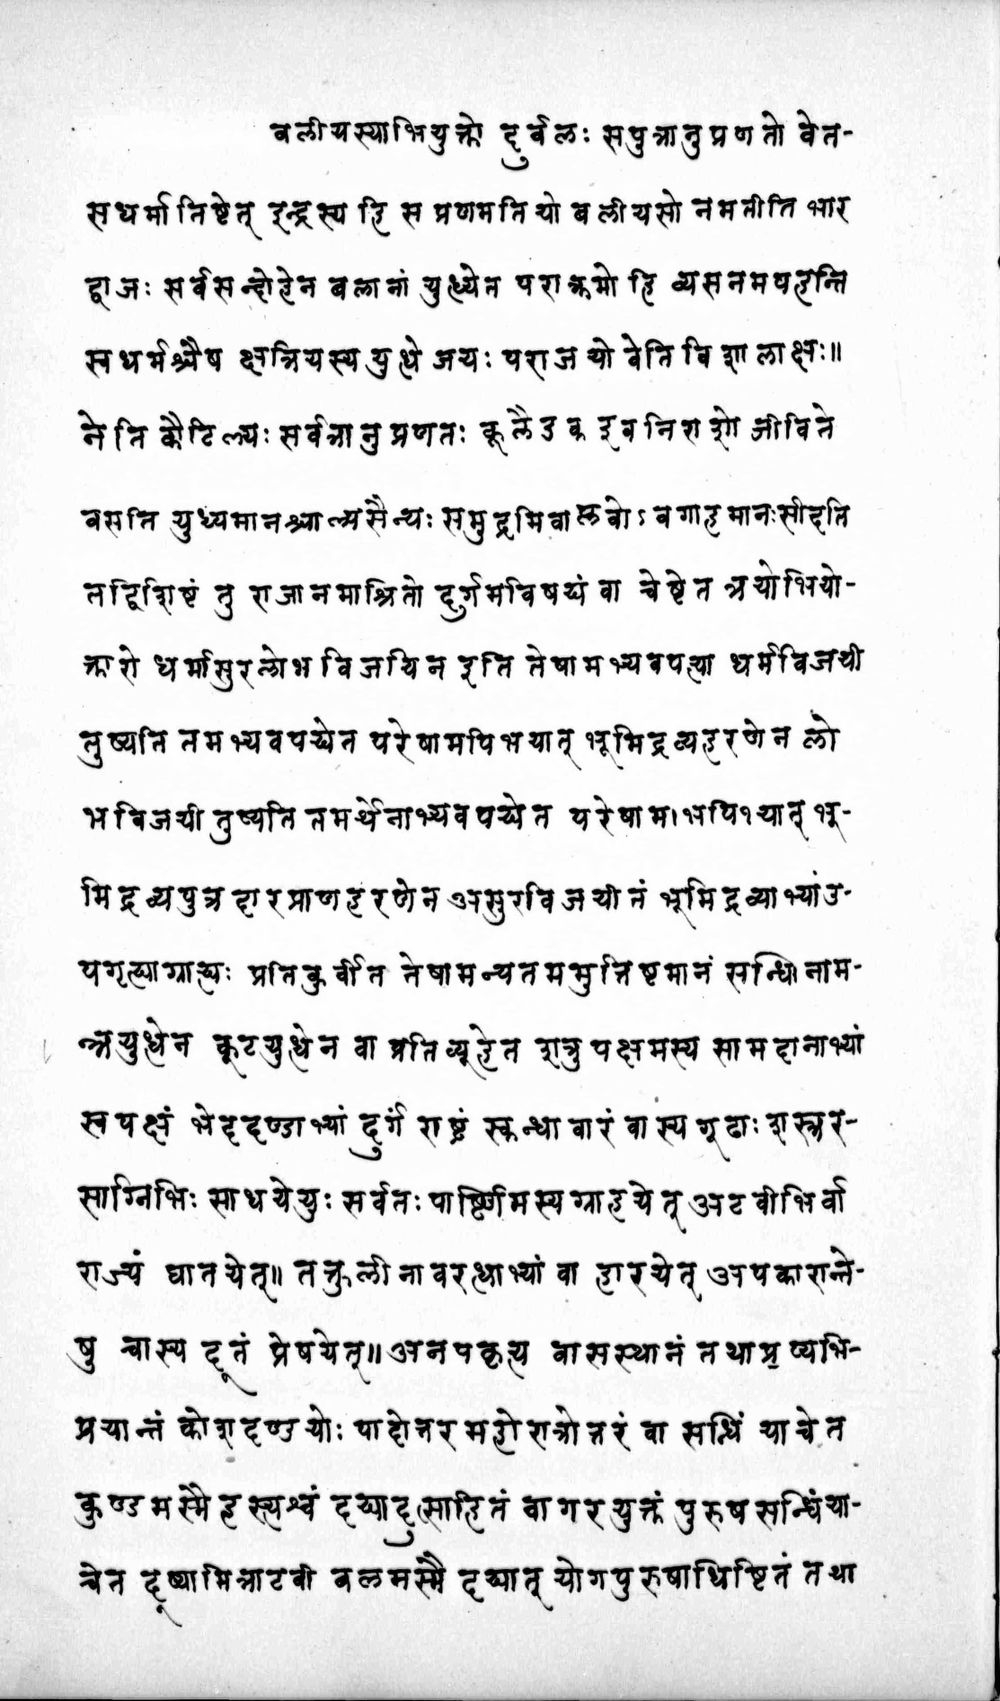 बलीयस्याभियुक्तो दुर्बलः सपुत्रानुप्रणतो वेत-
सधर्मातिष्टेत् इन्द्रस्य हि स प्रणमति यो बलीयसो नमतीति भार
द्वाजः सर्वसन्दोहेन बलानां युध्येत पराक्रमो हि व्यसनमपहन्ति
स्वधर्मश्चैष क्षत्रियस्य युद्धे जयः पराजयो वेति विशालाक्षः॥
नेति कौटिल्यः सर्वत्रानुप्रणतः कूलैडक इव निराशो जीविते
वसति युध्यमानश्चाल्पसैन्यः समुद्रमिवाप्लवोऽवगाहमानःसीदति
तद्विशिष्टं तु राजानमाश्रितो दुर्गमविषयं वा चेष्टेत त्रयोभियो-
क्तारो धर्मासुरलोभविजयिन इति तेषामभ्यवपत्या धर्मविजयी
तुष्यति तमभ्यवपद्येत परेषामपि भयात् भूमिद्रव्यहरणेन लो
भविजयी तुष्यति तमर्थेनाभ्यवपद्येत परेषाम।भपि१यात् भू-
मिद्रव्यपुत्रदारप्राणहरणेन असुरविजयी नं भूमिद्रव्याभ्यांउ-
पगृह्याग्राह्यः प्रतिकुर्वीत तेषामन्यतममुत्तिष्टमानं सन्धिनाम-
न्त्रयुद्धेन कूटयुद्धेन वा प्रतिव्यूहेत शत्रुपक्षमस्य सामदानाभ्यां
स्वपक्षं भेददण्डाभ्यां दुर्गं राष्ट्रं स्कन्धावारं वास्य गूढाः शस्त्रर-
साग्निभिः साधयेयुः सर्वतः पार्ष्णिमस्य ग्राहयेत् अटवीभिर्वा
राज्यं घातयेत्॥ तत्कुलीनावरुद्धाभ्यां वा हारयेत् अपकारान्ते-
षु चास्य दूतं प्रेषयेत्॥ अनपकृत्य वा सस्थानं तथाप्यभि-
प्रयान्तं कोशदण्डयोः पादोत्तरमहोरात्रोत्तरं वा सन्धिं याचेत
कुण्ठमस्मै हस्त्यश्वं दद्यादुत्साहितं वा गरयुक्तं पुरुषसन्धिंया-
चेत दूष्यामित्राटवी बलमस्मै दद्यात् योगपुरुषाधिष्टितं तथा